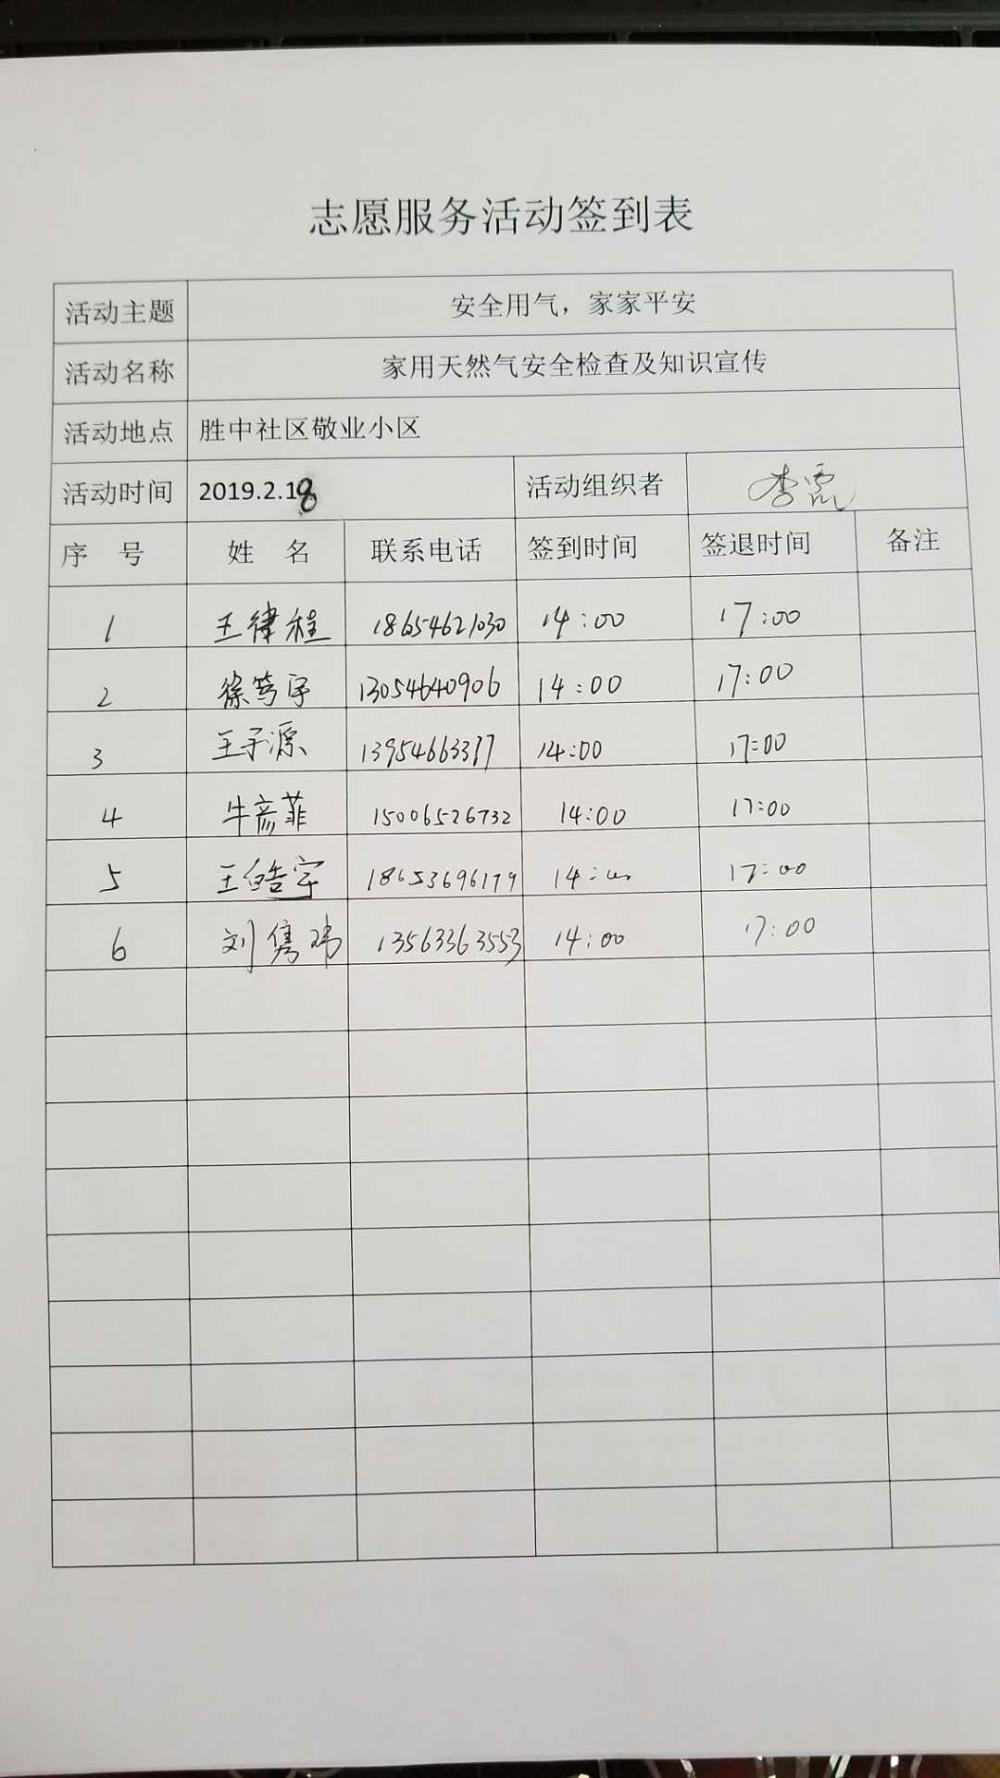 志愿服务活动签到表
活动主题 安全用气，家家平安
活动名称 家用天然气安全检查及知识宣传
活动地点 胜中社区敬业小区
活动时间 2019.2.18 活动组织者 李
序 号 姓 名 联系电话 签到时间 签退时间 备注
1 王律程 18654621030 14:00 17:00
2 徐笃宇 13054640906 14:00 17:00
3 王子源 13954663377 14:00 17:00
4 牛彦菲 15006526732 14:00 17:00
5 王皓宇 18653696179 14:00 17:00
6 刘隽玮 13563363553 14:00 17:00